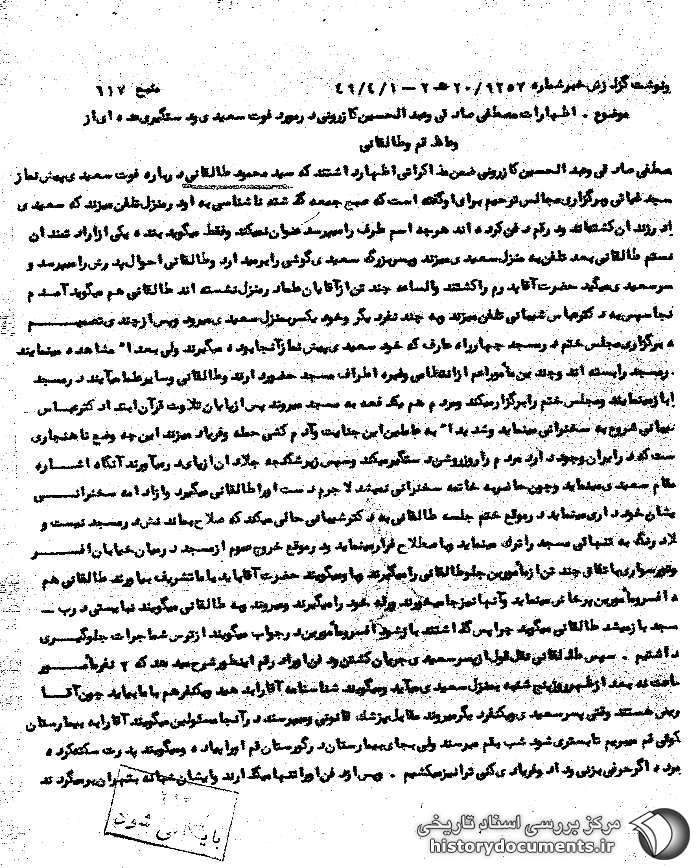 رونوشت گزارش خبر شماره ۲۰/۹۲۵۷ هـ ۲ — ۴۹/۴/۱ منبع ۶۱۷
موضوع . اظهارات مصطفی صادقی وعبدالحسین کازرونی درمورد فوت سعیدی ودستگیری عده ای از
وعاظ قم وطالقانی
مصطفی صادقی وعبدالحسین کازرونی ضمن مذاکراتی اظهار داشتند که سید محمود طالقانی درباره فوت سعیدی پیش نماز
مسجد غیاثی وبرگزاری مجالس ترحیم برای اوگفته است که صبح جمعه گذشته ناشناسی به او درمنزل تلفن میزند که سعیدی
را در زندان کشته‌اند ودرقم دفن کرده اند هرچه اسم طرف را میپرسد عنوان نمیکند وفقط میگوید بنده یکی از ارادتمندان
هستم طالقانی بعد تلفن به منزل سعیدی میزند وپسر بزرگ سعیدی گوشی را برمیدارد وطالقانی احوال پدرش را میپرسد و
پسر سعیدی میگوید حضرت آقا پدرم را کشتند والساعه چند تن ازآقایان علماء درمنزل نشسته اند طالقانی هم میگوید آمدم
آنجا سپس به دکترعباس شیبانی تلفن میزند وبه چند نفر دیگر وخود یکسر بمنزل سعیدی میرود وپس ازچندی تصمیم
به برگزاری مجلس ختم درمسجد چهارراه عارف که خود سعیدی پیش نماز آنجا بوده میگیرند ولی بعداً مشاهده مینمایند
درمسجد را بسته اند وچندین مأمور اعم از انتظامی وغیره اطراف مسجد حضور دارند وطالقانی وسایر علما میآیند درمسجد
را باز مینمایند ومجلس ختم را برگزار میکند ومردم هم یک دفعه به مسجد میروند پس ازپایان تلاوت قرآن ابتدا دکترعباس
شیبانی شروع به سخنرانی مینماید وشدیداً به عاملین این جنایت وآدم کشی حمله وفریاد میزند این چه وضع ناهنجاری
است که درایران وجود دارد مردم را روز روشن دستگیر میکند وسپس زیر شکنجه جلادان ازپای درمیآورند آنگاه اشاره
بمقام سعیدی مینماید وچون حاضر به خاتمه سخنرانی نمیشد لاجرم دست اورا طالقانی میگیرد وازادامه سخنرانی
ایشان خودداری مینماید درموقع ختم جلسه طالقانی به دکترشیبانی حالی میکند که صلاح بماندنش درمسجد نیست و
بلادرنگ به تنهائی مسجد را ترک مینماید وباصطلاح فرار مینماید ودرموقع خروج سوم ازمسجد درمیان خیابان افسر
وظهور سواری باتفاق چند تن ازمأمورین جلو طالقانی را میگیرند وبا ومیگویند حضرت آقا باید با ما تشریف بیاورند طالقانی هم
به افسرومأمورین پرخاش مینماید وآنها نیزجا میخورند وراه خود را میگیرند ومیروند وبه طالقانی میگویند نبایستی درب —
مسجد باز میشد طالقانی میگوید چرا پس گذاشتند باز شود افسر ومأمورین درجواب میگویند ازترس شما جرات جلوگیری
نداشتیم . سپس طالقانی نقل قول ازپسر سعیدی جریان کشتن ودفن اورا درقم اینطور شرح میدهد که ۲ نفر مأمور
ساعت نه بعد ازظهر روز پنج شنبه بمنزل سعیدی میآید ومیگویند شناسنامه آقا را بدهید ویکنفر هم با ما بیاید چون آقا
مریض هستند وقتی پسر سعیدی ویکنفر دیگر میروند مقابل پزشک قانونی ومیپرسند درآنجا مسئولین میگویند آقا را به بیمارستان
نکوئی قم میبریم تا بستری شود شب بقم میرسند ولی بجای بیمارستان درگورستان قم اورا پیاده ومیگویند پدرت سکته کرده
ومرده اگر حرفی بزنی وداد وفریادی کنی ترا نیز میکشیم . وپس از دفن اورا تنها میگذارند وایشان شبانه بتهران برمیگردند
بایگانی شود
مرکز بررسی اسناد تاریخی
historydocuments.ir